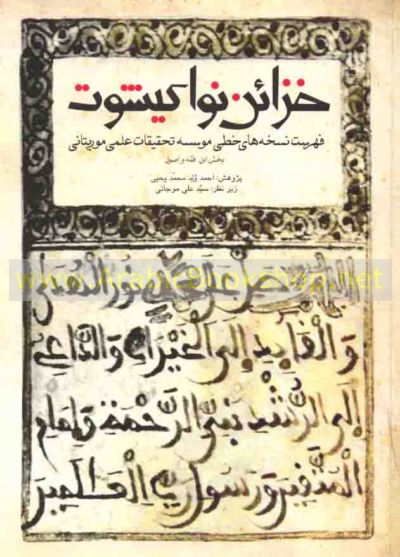 خزائن نواکیشوت
فهرست نسخه‌های خطی موسسه تحقیقات علمی موریتانی
بخش اول: فقه و اصول
پژوهش: احمد وُلِد محمّد یحیی
زیر نظر: سیّد علی موجانی
www.ArabicBookshop.net
وَالْقَايِدِ إِلَى الْخَيْرَاتِ وَالدَّاعِي
إِلَى الرُّشْدِ نَبِيِّ الرَّحْمَةِ وَإِمَامِ
الْمُتَّقِينَ وَرَسُولِ رَبِّ الْعَالَمِينَ